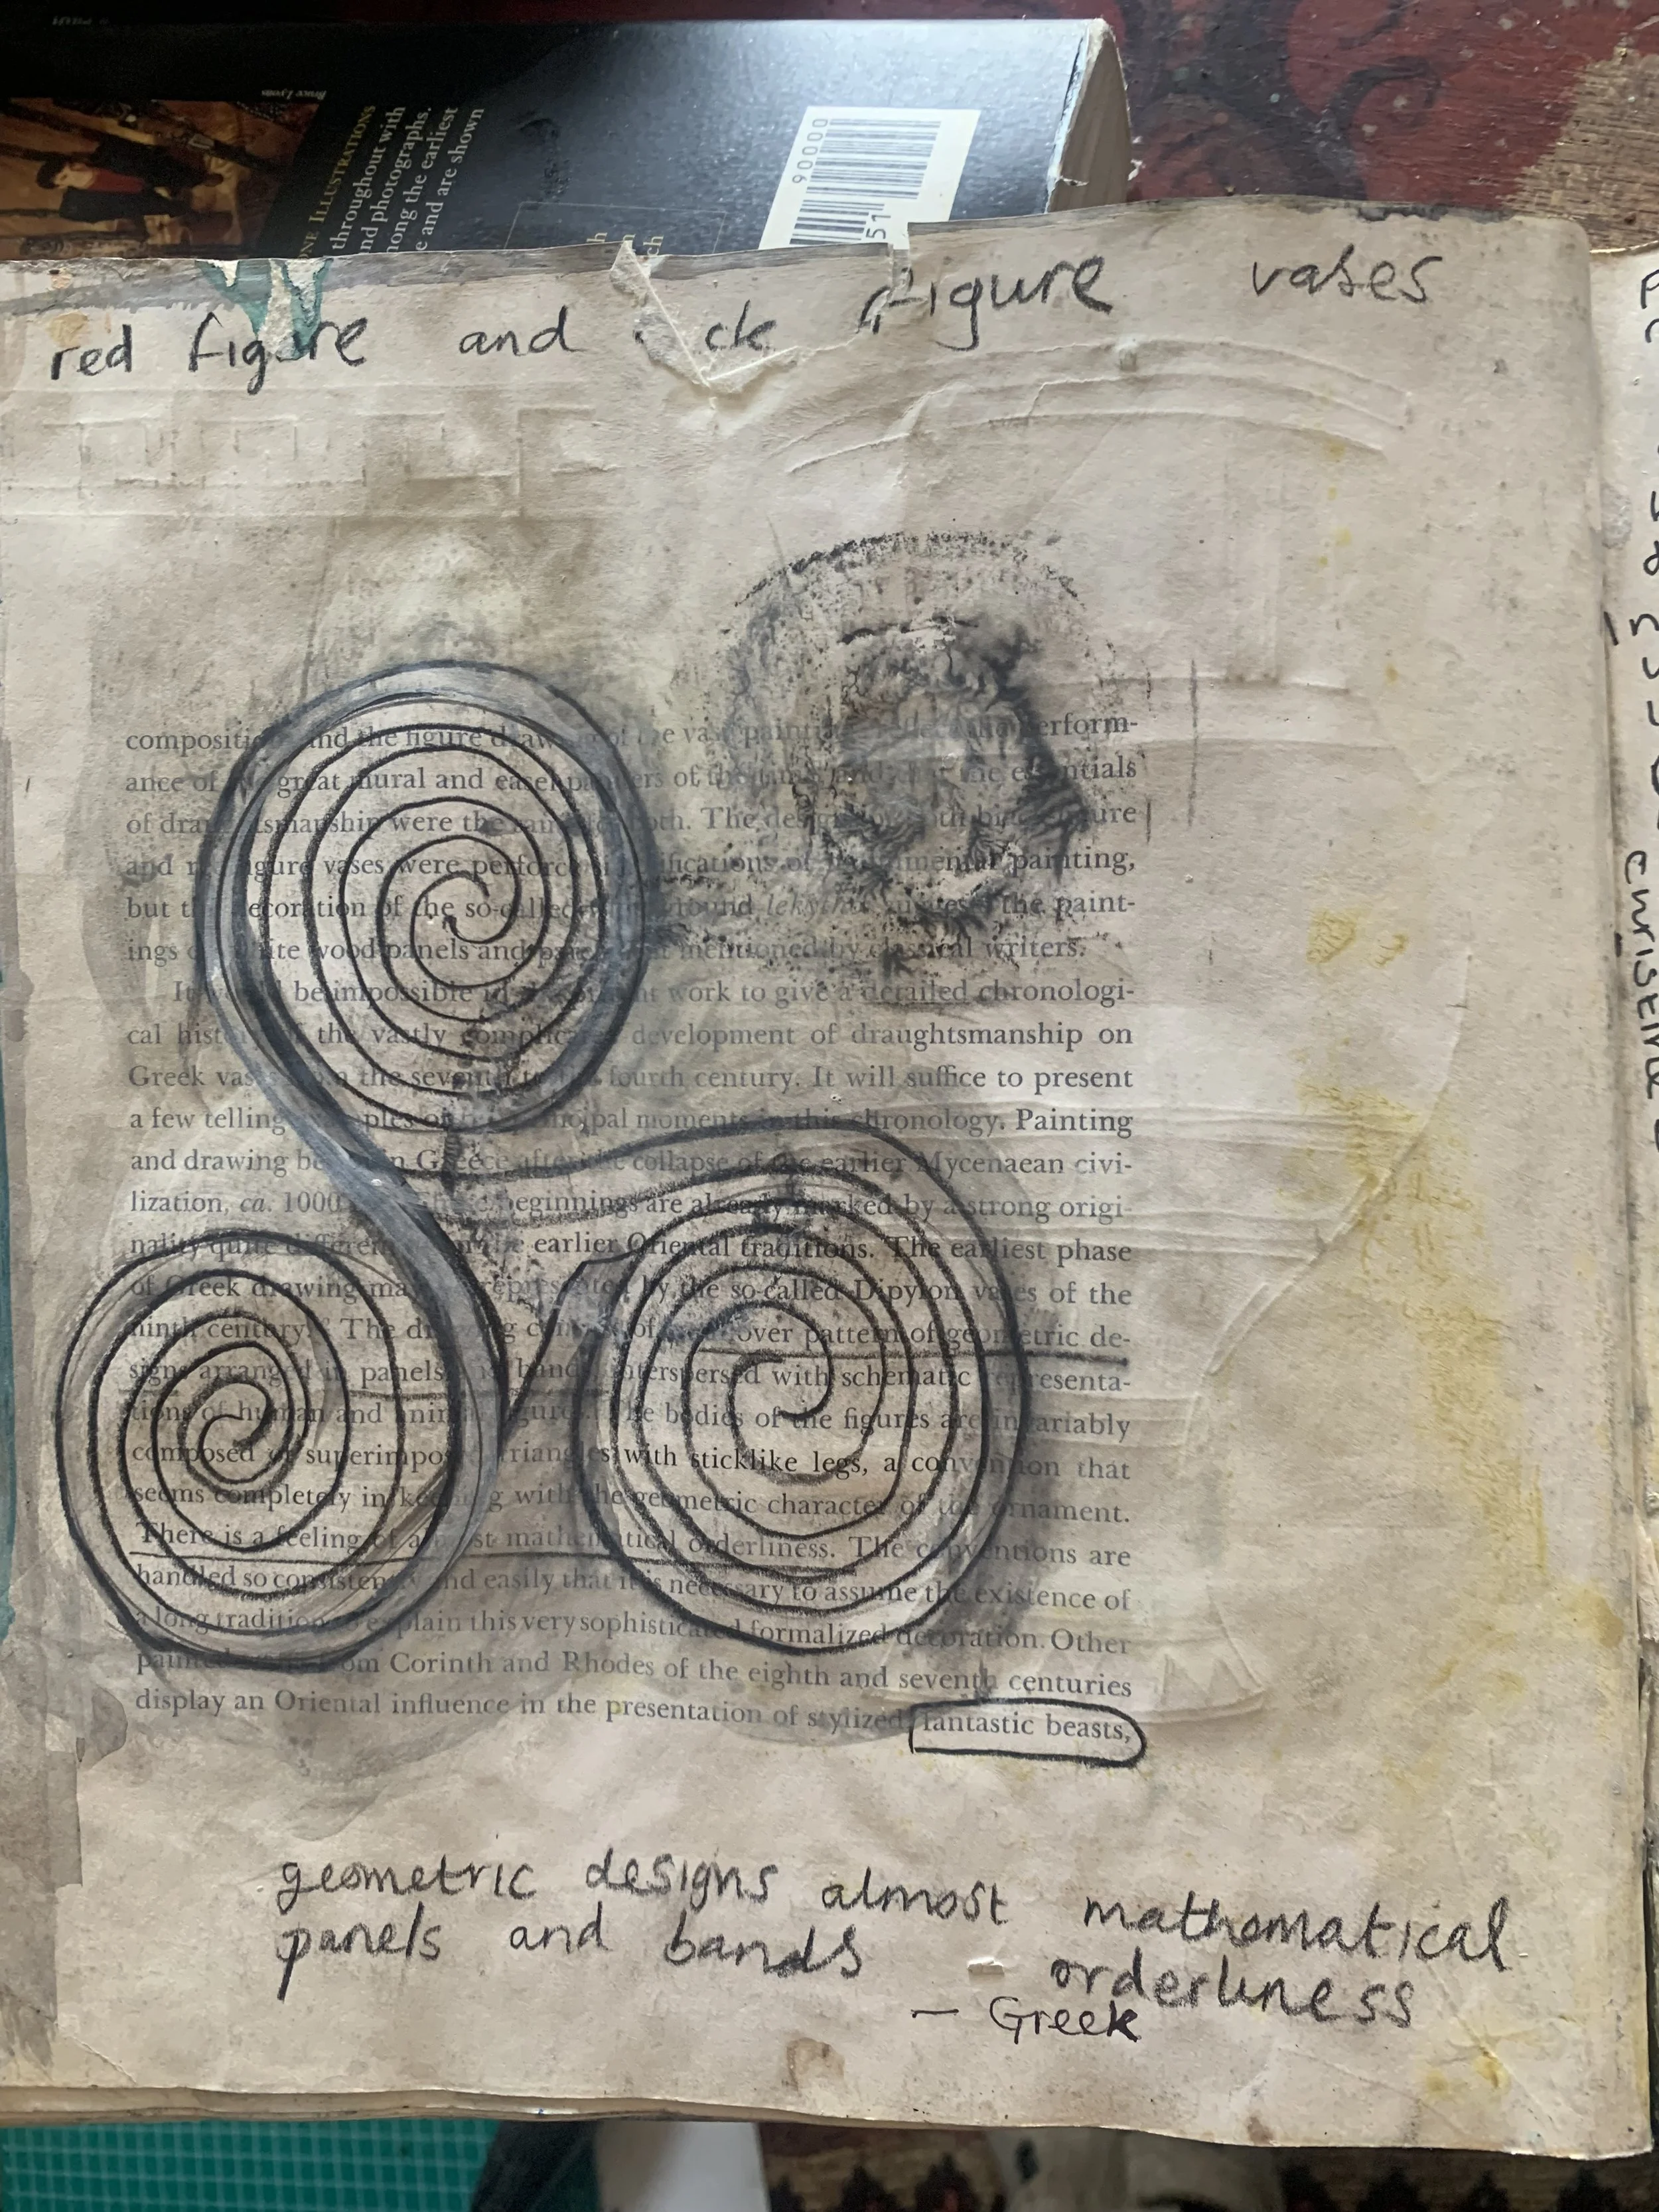 Bruce Lyons
ILLUSTRATIONS
throughout with
photographs.
the earliest
e and are shown
90000
51
ch
red figure and ck figure vases
and the figure of the perform-
ance of great mural and easel of the
of were the The
and figure vases were of painting,
but the of the so-called lekythoi the paint-
ings wood panels and mentioned by classical writers.
It be impossible work to give a detailed chronologi-
cal the vastly development of draughtsmanship on
Greek the fourth century. It will suffice to present
a few telling moments in this chronology. Painting
and drawing in Greece after the collapse of the earlier Mycenaean civi-
lization, ca. 1000 beginnings are already marked by a strong origi-
nality quite earlier Oriental traditions. The earliest phase
of Greek drawing represented by the so-called Dipylon vases of the
ninth century. The of over pattern of geometric de-
signs arranged in panels interspersed with schematic representa-
tions of human and The bodies of the figures are invariably
composed of triangles with sticklike legs, a convention that
seems completely in with the geometric character of the ornament.
There is a feeling of mathematical orderliness. The conventions are
handled so and easily that it is necessary to assume the existence of
a long tradition explain this very sophisticated formalized decoration. Other
Corinth and Rhodes of the eighth and seventh centuries
display an Oriental influence in the presentation of stylized fantastic beasts,
geometric designs almost mathematical
panels and bands orderliness
— Greek
christine